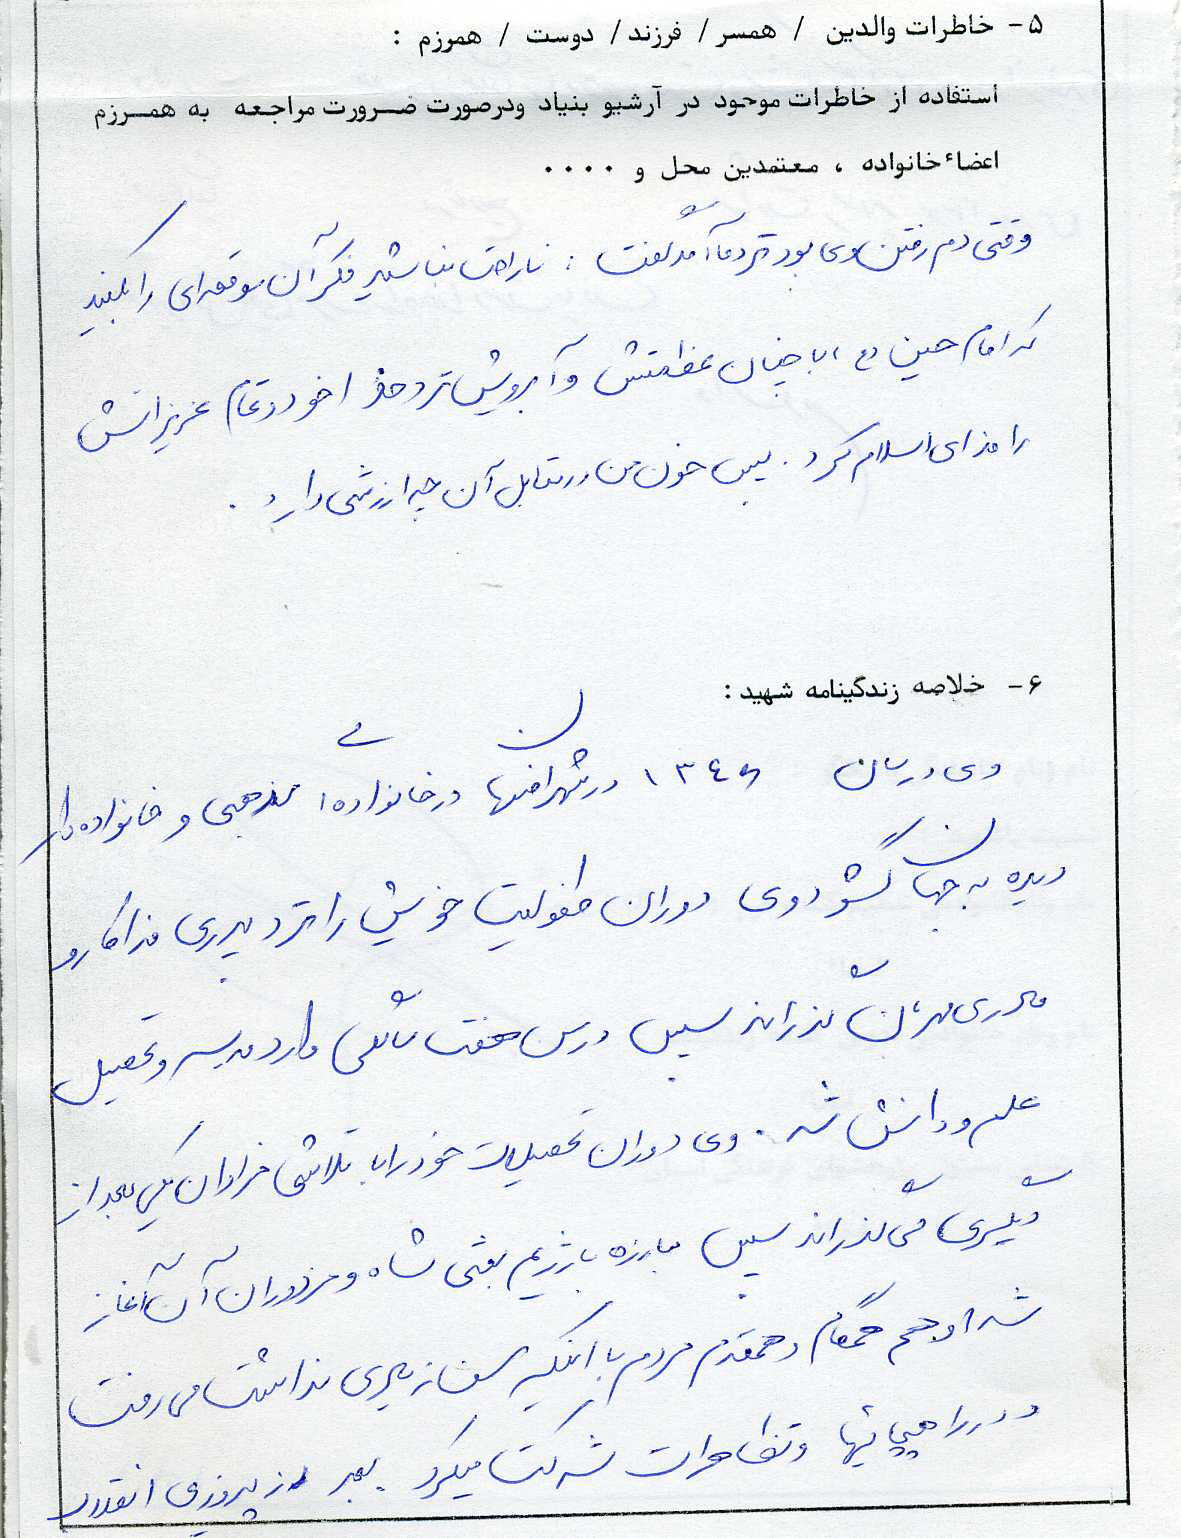 ۵- خاطرات والدین / همسر / فرزند / دوست / همرزم :
استفاده از خاطرات موجود در آرشیو بنیاد ودرصورت ضرورت مراجعه به همرزم
اعضاء خانواده ، معتمدین محل و ....
وقتی دم رفتن وی بود نزد ما آمد گفت : ناراحت نباشید فکر آن موقعه ای را بکنید
که امام حسین (ع) با چنان عظمتش و آبرویش نزد خدا خود و تمام عزیزانش
را فدای اسلام کرد . پس خون من در مقابل آن چه ارزشی دارد .
۶- خلاصه زندگینامه شهید :
وی در سال ۱۳۴۵ در شهر اصفهان در خانواده ای مذهبی و خانواده دار
دیده به جهان گشود وی دوران طفولیت خویش را نزد پدری فداکار و
مادری مهربان گذراند سپس در سن هفت سالگی وارد مدرسه و تحصیل
علم و دانش شد . وی دوران تحصیلات خود را با تلاشی فراوان یکی بعد از
دیگری می گذراند سپس مبارزه با رژیم شاه و مزدوران آن آغاز
شد او هم همگام و همقدم مردم با اینکه سن زیادی نداشت می رفت
و در راهپیمائیها و تظاهرات شرکت میکرد . بعد از پیروزی انقلاب